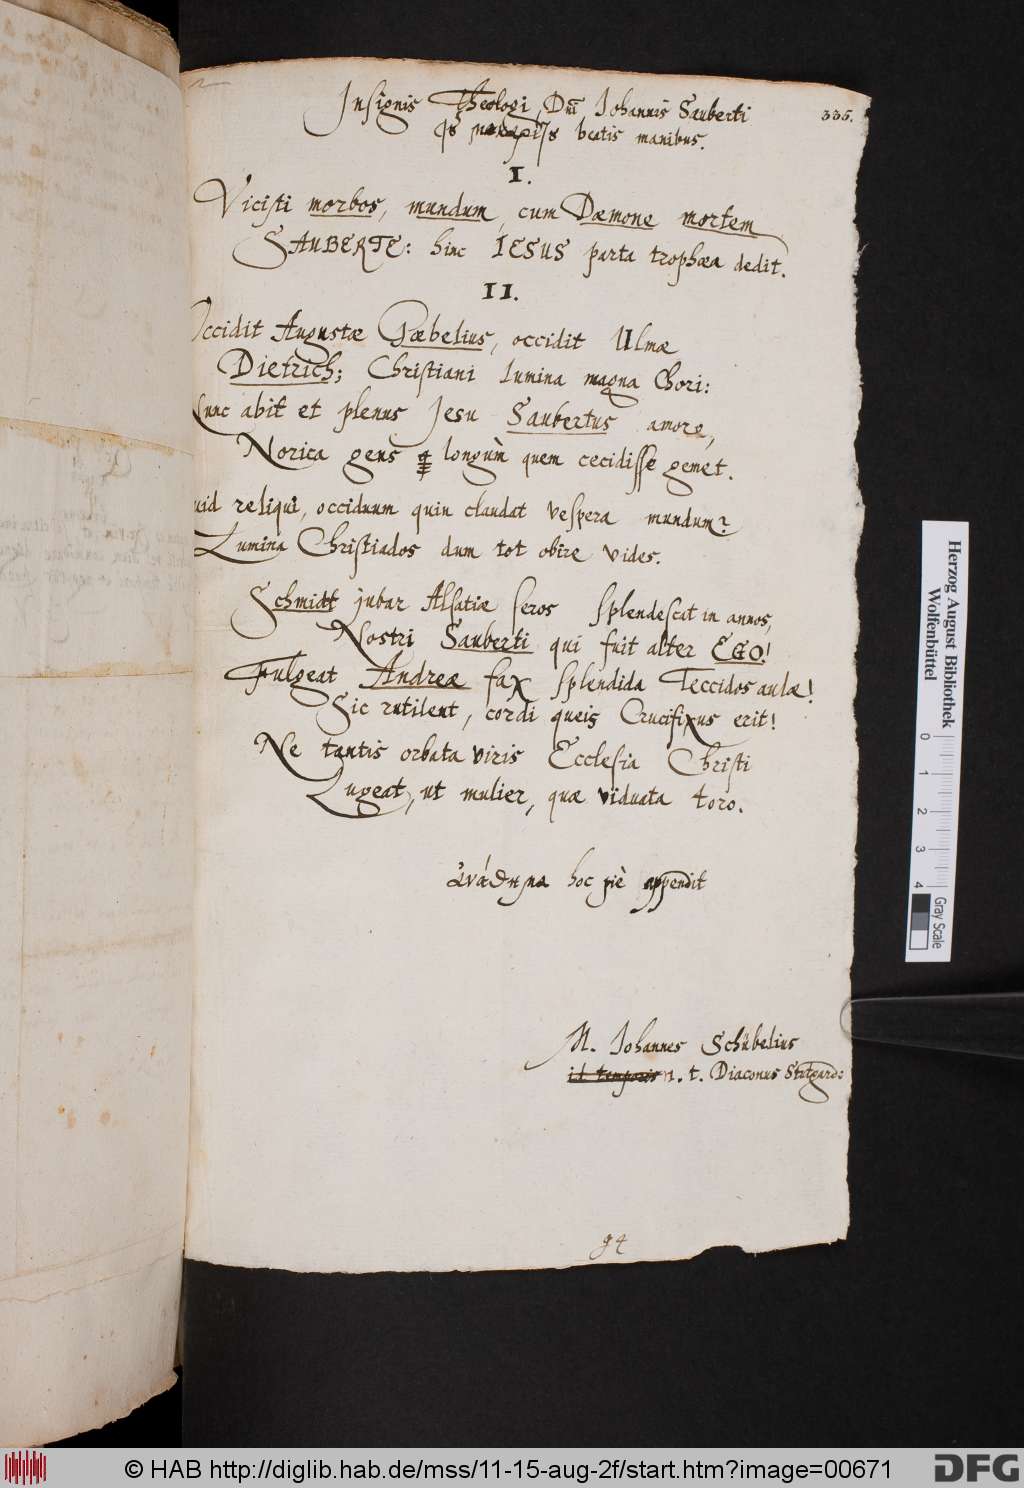 Insignis Theologi, Dnī Johannis Sauberti
335.
beatis manibus.
I.
Vicisti morbos, mundum, cum Dæmone mortem
SAUBERTE: hinc IESUS parta trophæa dedit.
II.
Occidit Augustæ Gæbelius, occidit Ulmæ
Dietrich; Christiani lumina magna Chori:
Nunc abit et plenus Jesu Saubertus amore,
Norica gens longùm quem cecidisse gemet.
uid reliqui, occiduum quin claudat vespera mundum?
Lumina Christiados dum tot obire vides.
Schmidt jubar Alsatiæ seros splendescat in annos,
Nostri Sauberti qui fuit alter EGO!
Fulgeat Andreæ fax splendida Teccidos aulæ!
Sic rutilent, cordi queis Crucifixus erit!
Ne tantis orbata viris Ecclesia Christi
Lugeat, ut mulier, quæ viduata toro.
ἀνάθημα hoc piè appendit
M. Johannes Schübelius
id temporis n. t. Diaconus Stutgard:
94
Herzog August Bibliothek
Wolfenbüttel
0 1 2 3 4
Gray Scale
© HAB http://diglib.hab.de/mss/11-15-aug-2f/start.htm?image=00671
DFG